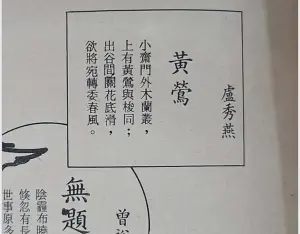 黃鶯
盧秀燕
小齋門外木蘭叢，
上有黃鶯與梭同；
出谷間關花底滑，
欲將宛轉委春風。
無題
陰霾布
倏忽有長
世事原多